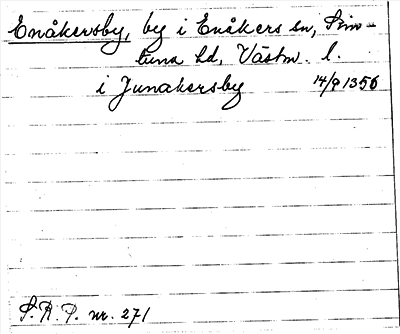 Enåkersby, by i Enåkers sn, Sim-
tuna hd, Västm. l.
i Junakersby 14/9 1356
S.R.P. nr. 271